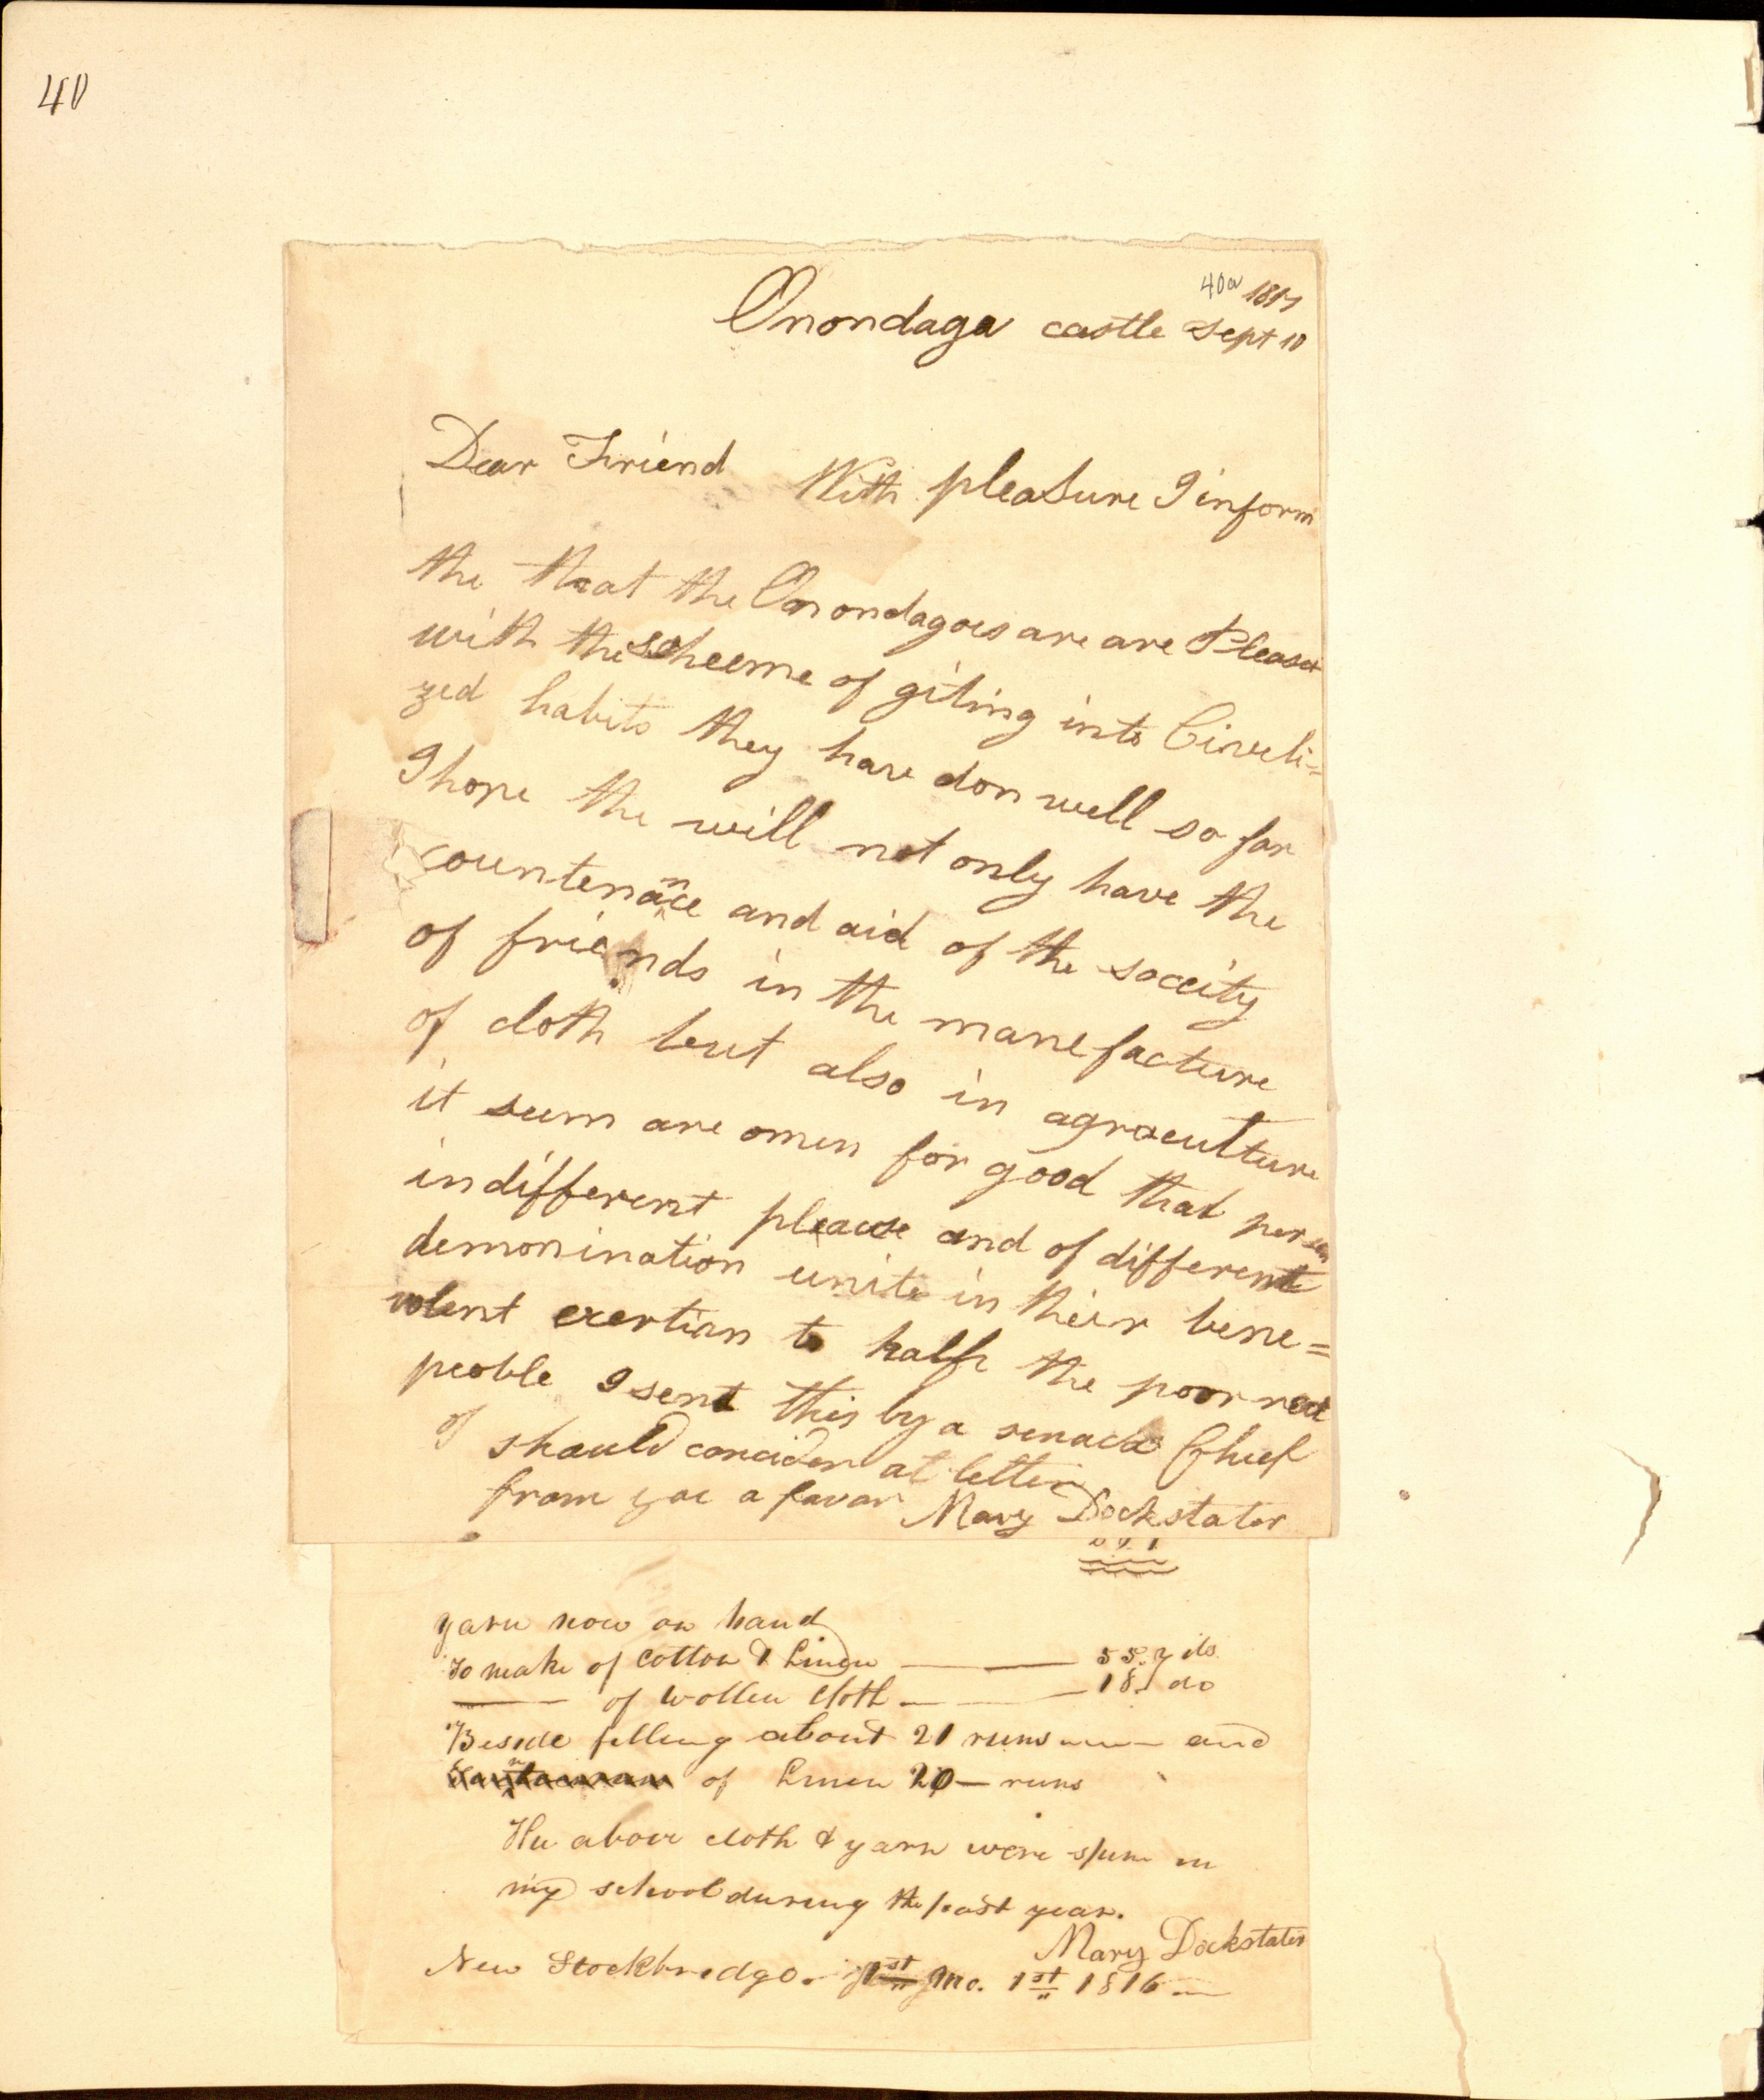 40
40a 1817
Onondaga castle Sept 10
Dear Friend With pleasure I inform
the that the Onondagoes are are Pleased
with the scheeme of giting into Civeli=
zed habits they have don well so far
I hope the will not only have the
countenance and aid of the soceity
of friends in the manefacture
of cloth but also in agraculture
it seem are omen for good that person
indifferent pleace and of different
demonination unite in their bene=
volent exertion to halp the poor red
peoble I sent this by a senaca Chief
I should concider at letter
from yoe a favor Mary Dockstater
yarn now on hand
To make of Cotton & Linen 55. yds.
of Wollen Cloth 18. do
Beside filling about 21 runs and
of Linen 20 runs
The above cloth & yarn were spun in
my school during the past year.
Mary Dockstater
New Stockbridge. 1st Mo. 1st 1816